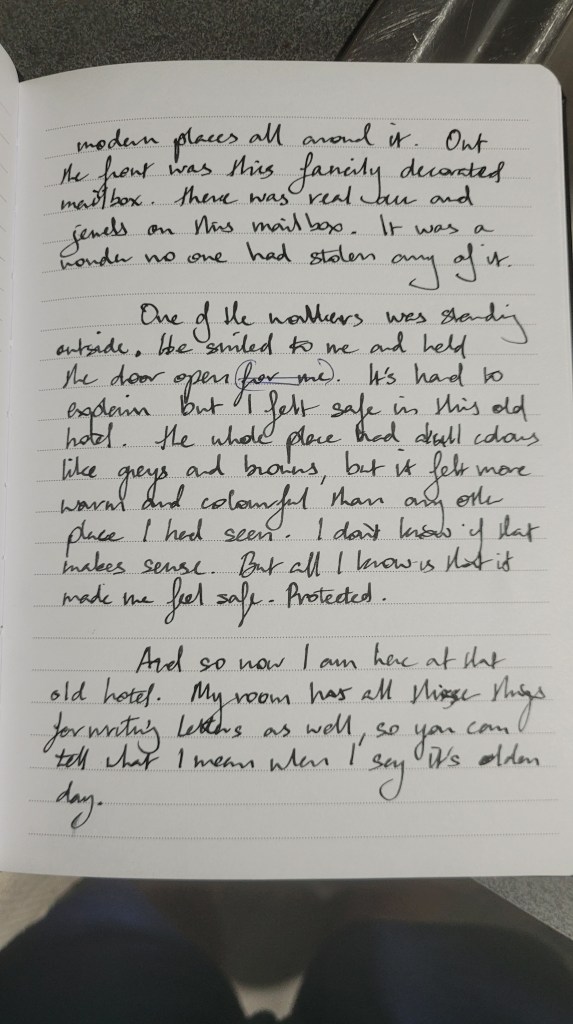 modern places all around it. Out
the front was this fancily decorated
mailbox. There was real and
jewels on this mailbox. It was a
wonder no one had stolen any of it.
One of the workers was standing
outside. He smiled to me and held
the door open (for me). It's hard to
explain but I felt safe in this old
hotel. The whole place had dull colours
like greys and browns, but it felt more
warm and colourful than any other
place I had seen. I don't know if that
makes sense. But all I know is that it
made me feel safe. Protected.
And so now I am here at that
old hotel. My room has all these things
for writing letters as well, so you can
tell what I mean when I say it's olden
day.